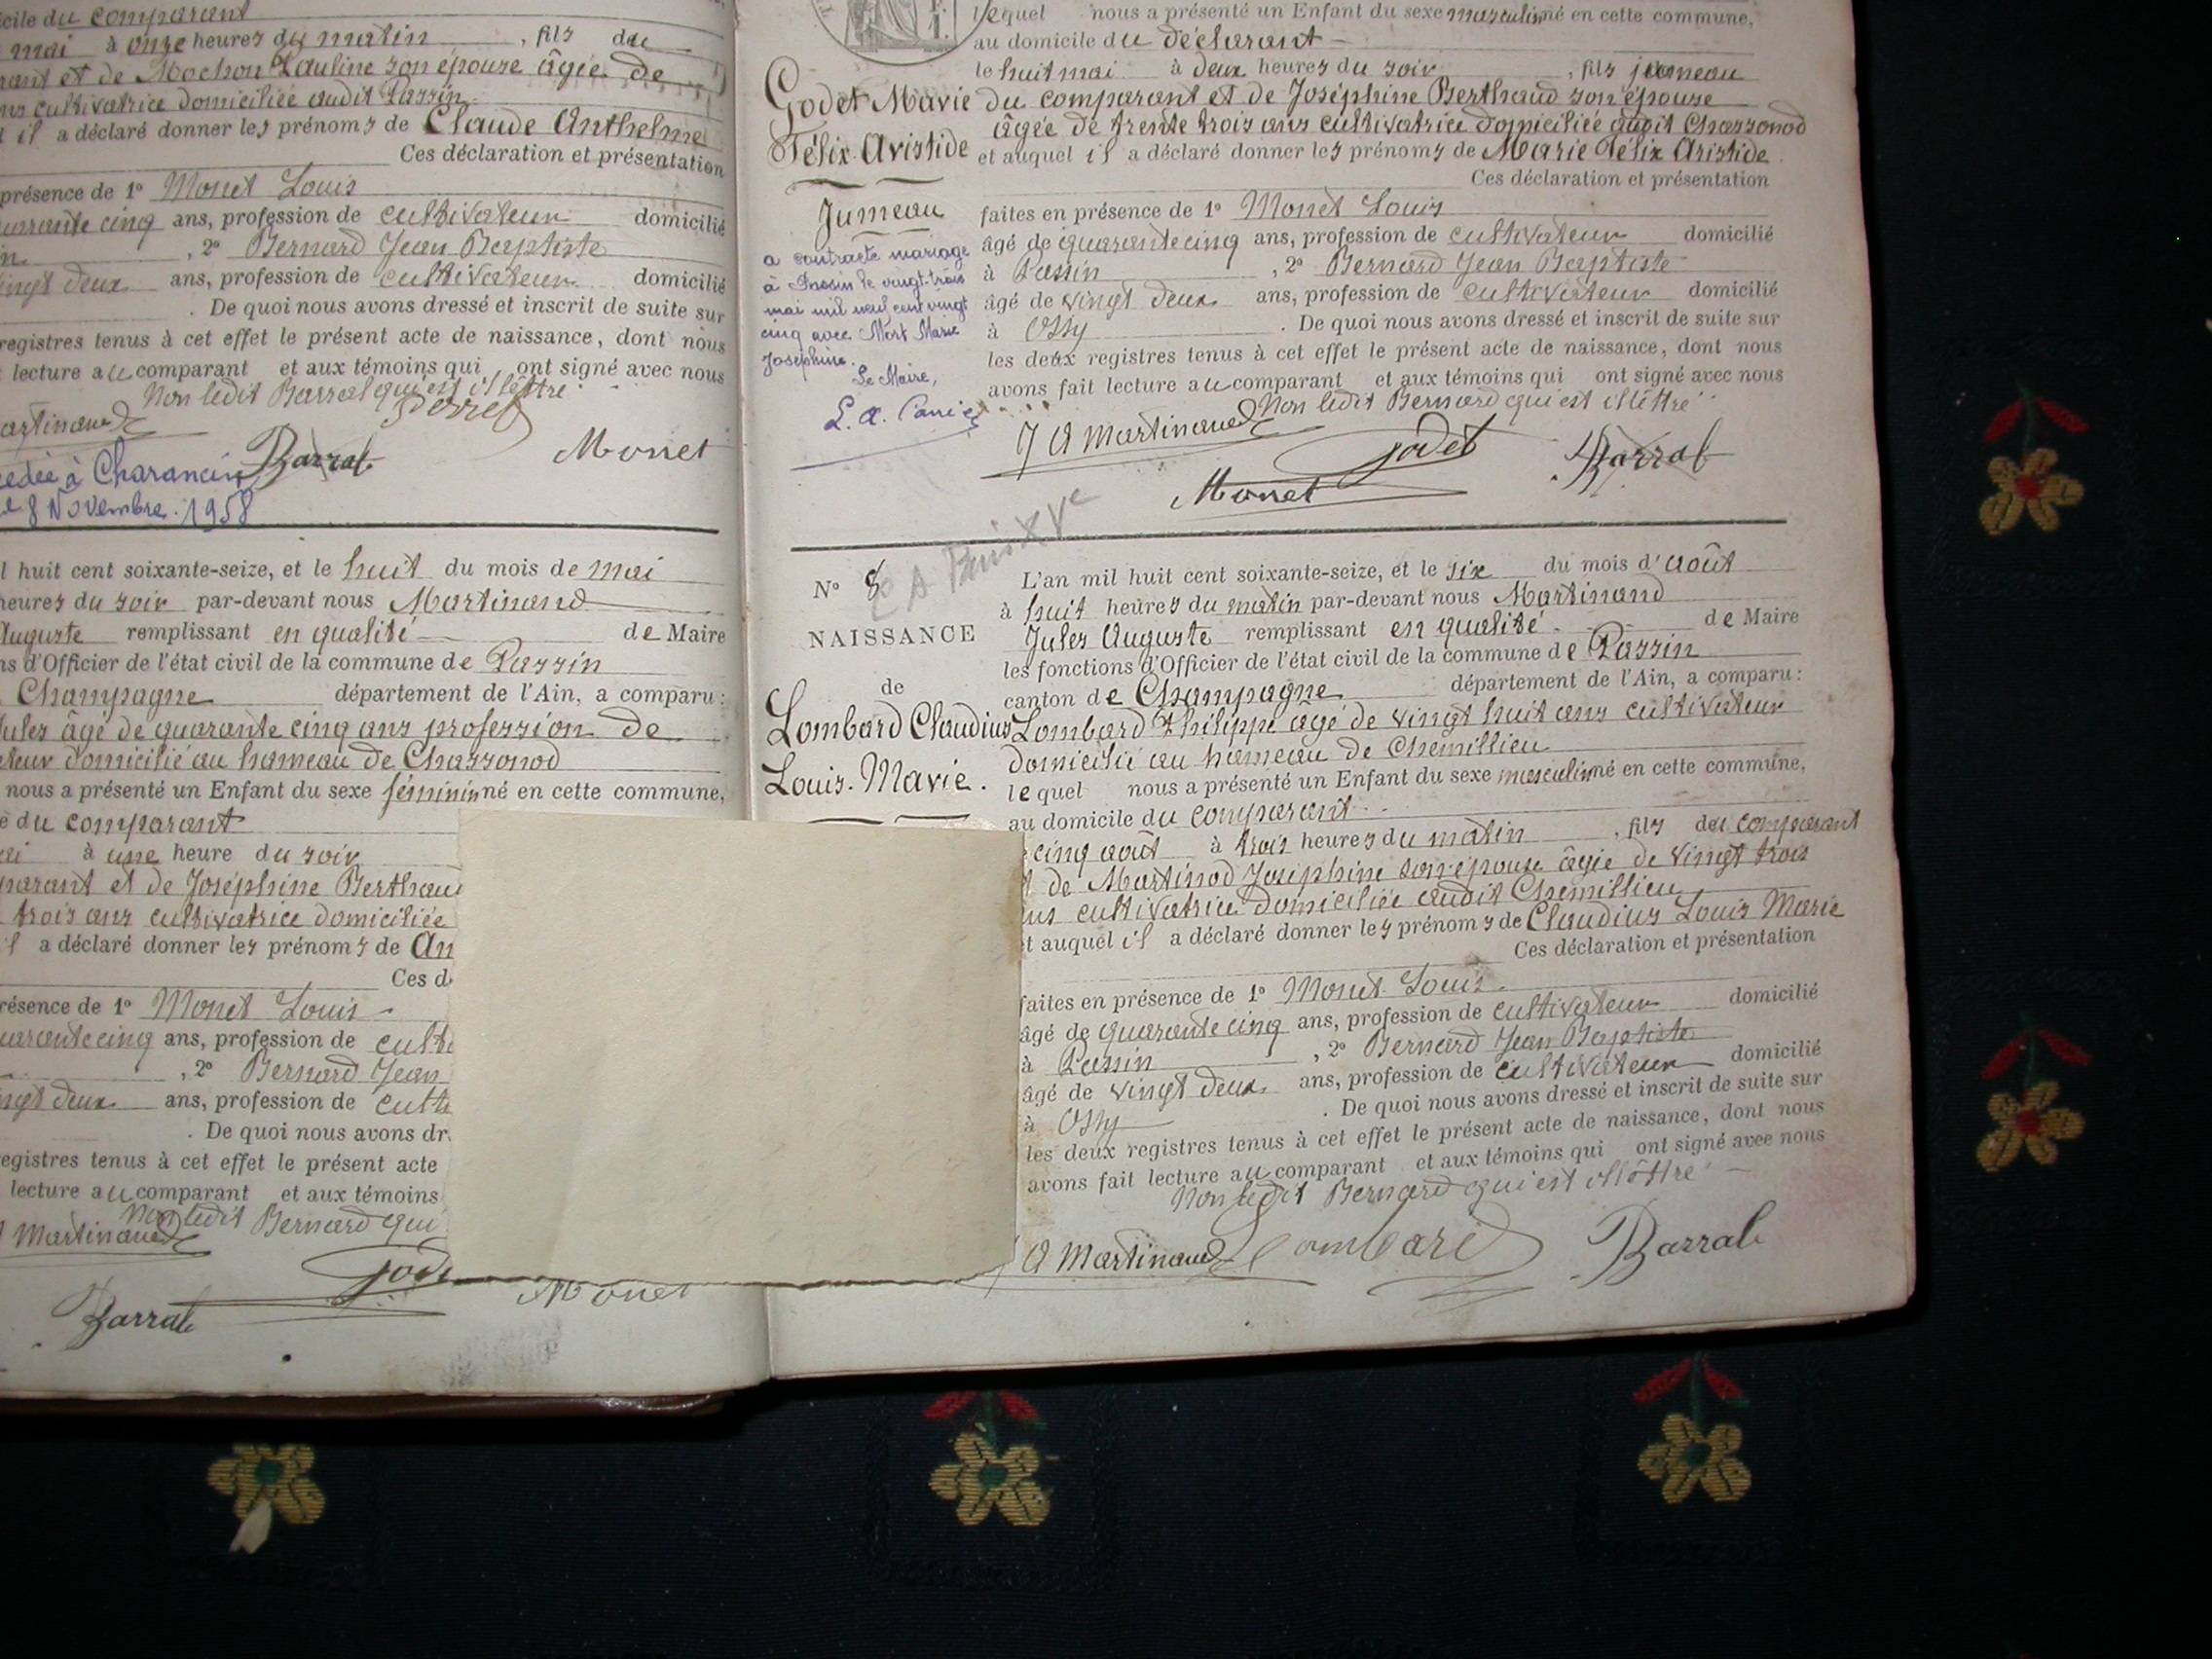 cile du comparant
mai à onze heures du matin , fils du
rant et de Mochon Pauline son épouse âgée de
ns cultivatrice domiciliée audit Passin
il a déclaré donner les prénoms de Claude Anthelme
Ces déclaration et présentation
présence de 1º Monet Louis
quarante cinq ans, profession de cultivateur domicilié
, 2º Bernard Jean Baptiste
vingt deux ans, profession de cultivateur domicilié
. De quoi nous avons dressé et inscrit de suite sur
registres tenus à cet effet le présent acte de naissance, dont nous
lecture au comparant et aux témoins qui ont signé avec nous
Non ledit Barral qui est illéttré
artinand
Barral
Monet
cédée à Charancin
le 8 Novembre 1958
l huit cent soixante-seize, et le huit du mois de mai
heures du soir par-devant nous Martinand
Auguste remplissant en qualité de Maire
ns d'Officier de l'état civil de la commune de Passin
Champagne département de l'Ain, a comparu :
Jules âgé de quarante cinq ans profession de
teur domicilié au hameau de Chassonod
nous a présenté un Enfant du sexe féminin né en cette commune,
e du comparant
ai à une heure du soir
parant et de Joséphine Berthaud
trois ans cultivatrice domiciliée
il a déclaré donner les prénoms de An
Ces d
résence de 1º Monet Louis
quarante cinq ans, profession de culti
, 2º Bernard Jean
ingt deux ans, profession de culti
. De quoi nous avons dr
egistres tenus à cet effet le présent acte
lecture au comparant et aux témoins
Non ledit Bernard qui
Martinand
Gode
Barral
Monet
lequel nous a présenté un Enfant du sexe masculin né en cette commune,
au domicile du déclarant
le huit mai à deux heures du soir , fils jumeau
Godet Marie
Félix Aristide
Jumeau
du comparant et de Joséphine Berthaud son épouse
âgée de trente trois ans cultivatrice domiciliée audit Chassonod
et auquel il a déclaré donner les prénoms de Marie Félix Aristide
Ces déclaration et présentation
faites en présence de 1º Monet Louis
âgé de quarante cinq ans, profession de cultivateur domicilié
à Passin , 2º Bernard Jean Baptiste
âgé de vingt deux ans, profession de cultivateur domicilié
à Ossy . De quoi nous avons dressé et inscrit de suite sur
les deux registres tenus à cet effet le présent acte de naissance, dont nous
avons fait lecture au comparant et aux témoins qui ont signé avec nous
Non ledit Bernard qui est illéttré
a contracté mariage
à le vingt-trois
mai mil neuf cent vingt
cinq avec Mort Marie
Joséphine.
Le Maire,
J A Martinand
Godet
Barral
Monet
Nº 8
NAISSANCE
de
Lombard Claudius
Louis Marie.
L'an mil huit cent soixante-seize, et le six du mois d'août
à huit heures du matin par-devant nous Martinand
Jules Auguste remplissant en qualité de Maire
les fonctions d'Officier de l'état civil de la commune de Passin
canton de Champagne département de l'Ain, a comparu :
Lombard Philippe âgé de vingt huit ans cultivateur
domicilié au hameau de Chemillieu
lequel nous a présenté un Enfant du sexe masculin né en cette commune,
au domicile du comparant
cinq août à trois heures du matin , fils du comparant
de Martinod Joséphine son épouse âgée de vingt trois
ans cultivatrice domiciliée audit Chemillieu
t auquel il a déclaré donner les prénoms de Claudius Louis Marie
Ces déclaration et présentation
faites en présence de 1º Monet Louis
âgé de quarante cinq ans, profession de cultivateur domicilié
à Passin , 2º Bernard Jean Baptiste
âgé de vingt deux ans, profession de cultivateur domicilié
à Ossy . De quoi nous avons dressé et inscrit de suite sur
les deux registres tenus à cet effet le présent acte de naissance, dont nous
avons fait lecture au comparant et aux témoins qui ont signé avec nous
Non ledit Bernard qui est illéttré
A Martinand
Lombard
Barral